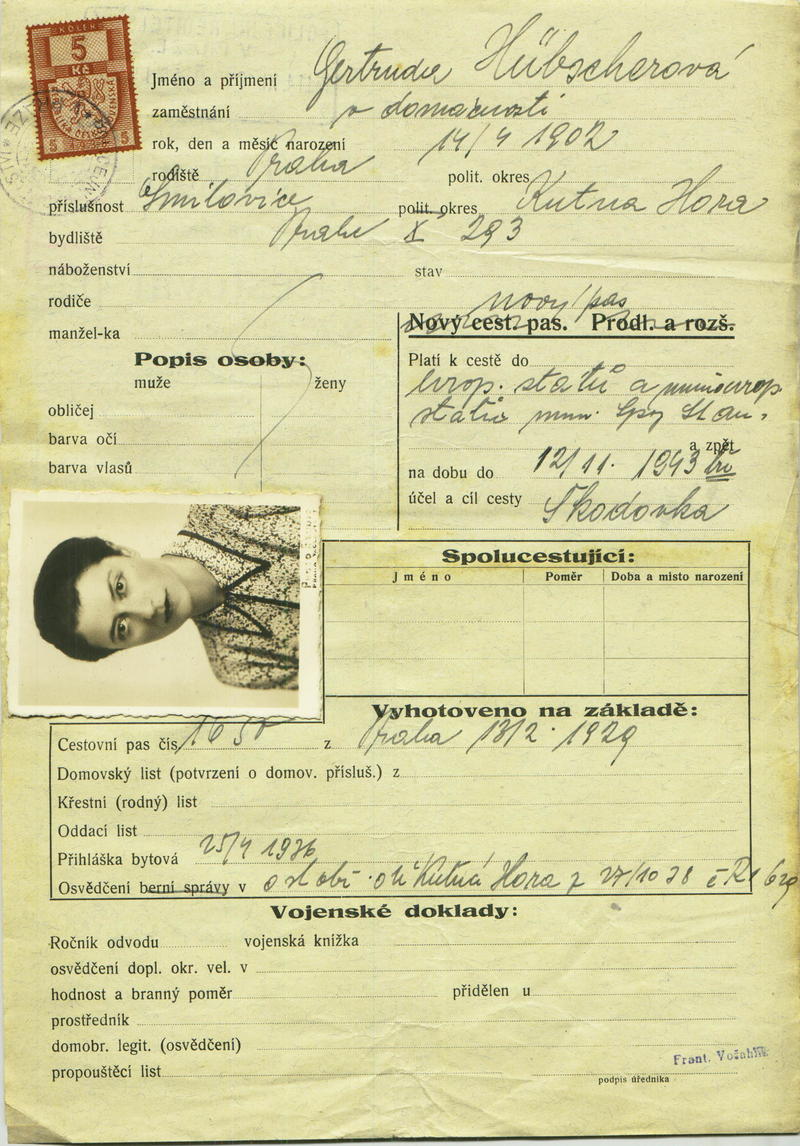 KOLEK
5
Kč
Jméno a příjmení Gertruda Hübscherová
zaměstnání v domácnosti
rok, den a měsíc narození 14/4 1902
rodiště Praha polit. okres
příslušnost Smilovice polit. okres Kutna Hora
bydliště Praha X 293
náboženství stav
rodiče
manžel-ka
nový pas
Nový cest. pas. Prodl. a rozš.
Popis osoby:
muže ženy
obličej
barva očí
barva vlasů
Platí k cestě do
evrop. států a mimoevrop
států mim.
a zpět
na dobu do 12/11. 1943
účel a cíl cesty Škodovka
Spolucestující:
Jméno Poměr Doba a místo narození
Vyhotoveno na základě:
Cestovní pas čís. 1650 z Praha 13/2. 1929
Domovský list (potvrzení o domov. přísluš.) z
Křestní (rodný) list
Oddací list
Přihláška bytová 25/4 1936
Osvědčení berní správy v Kutná Hora z 27/10 38 č R1
Vojenské doklady:
Ročník odvodu vojenská knížka
osvědčení dopl. okr. vel. v
hodnost a branný poměr přidělen u
prostředník
domobr. legit. (osvědčení)
propouštěcí list
Frant.
podpis úředníka